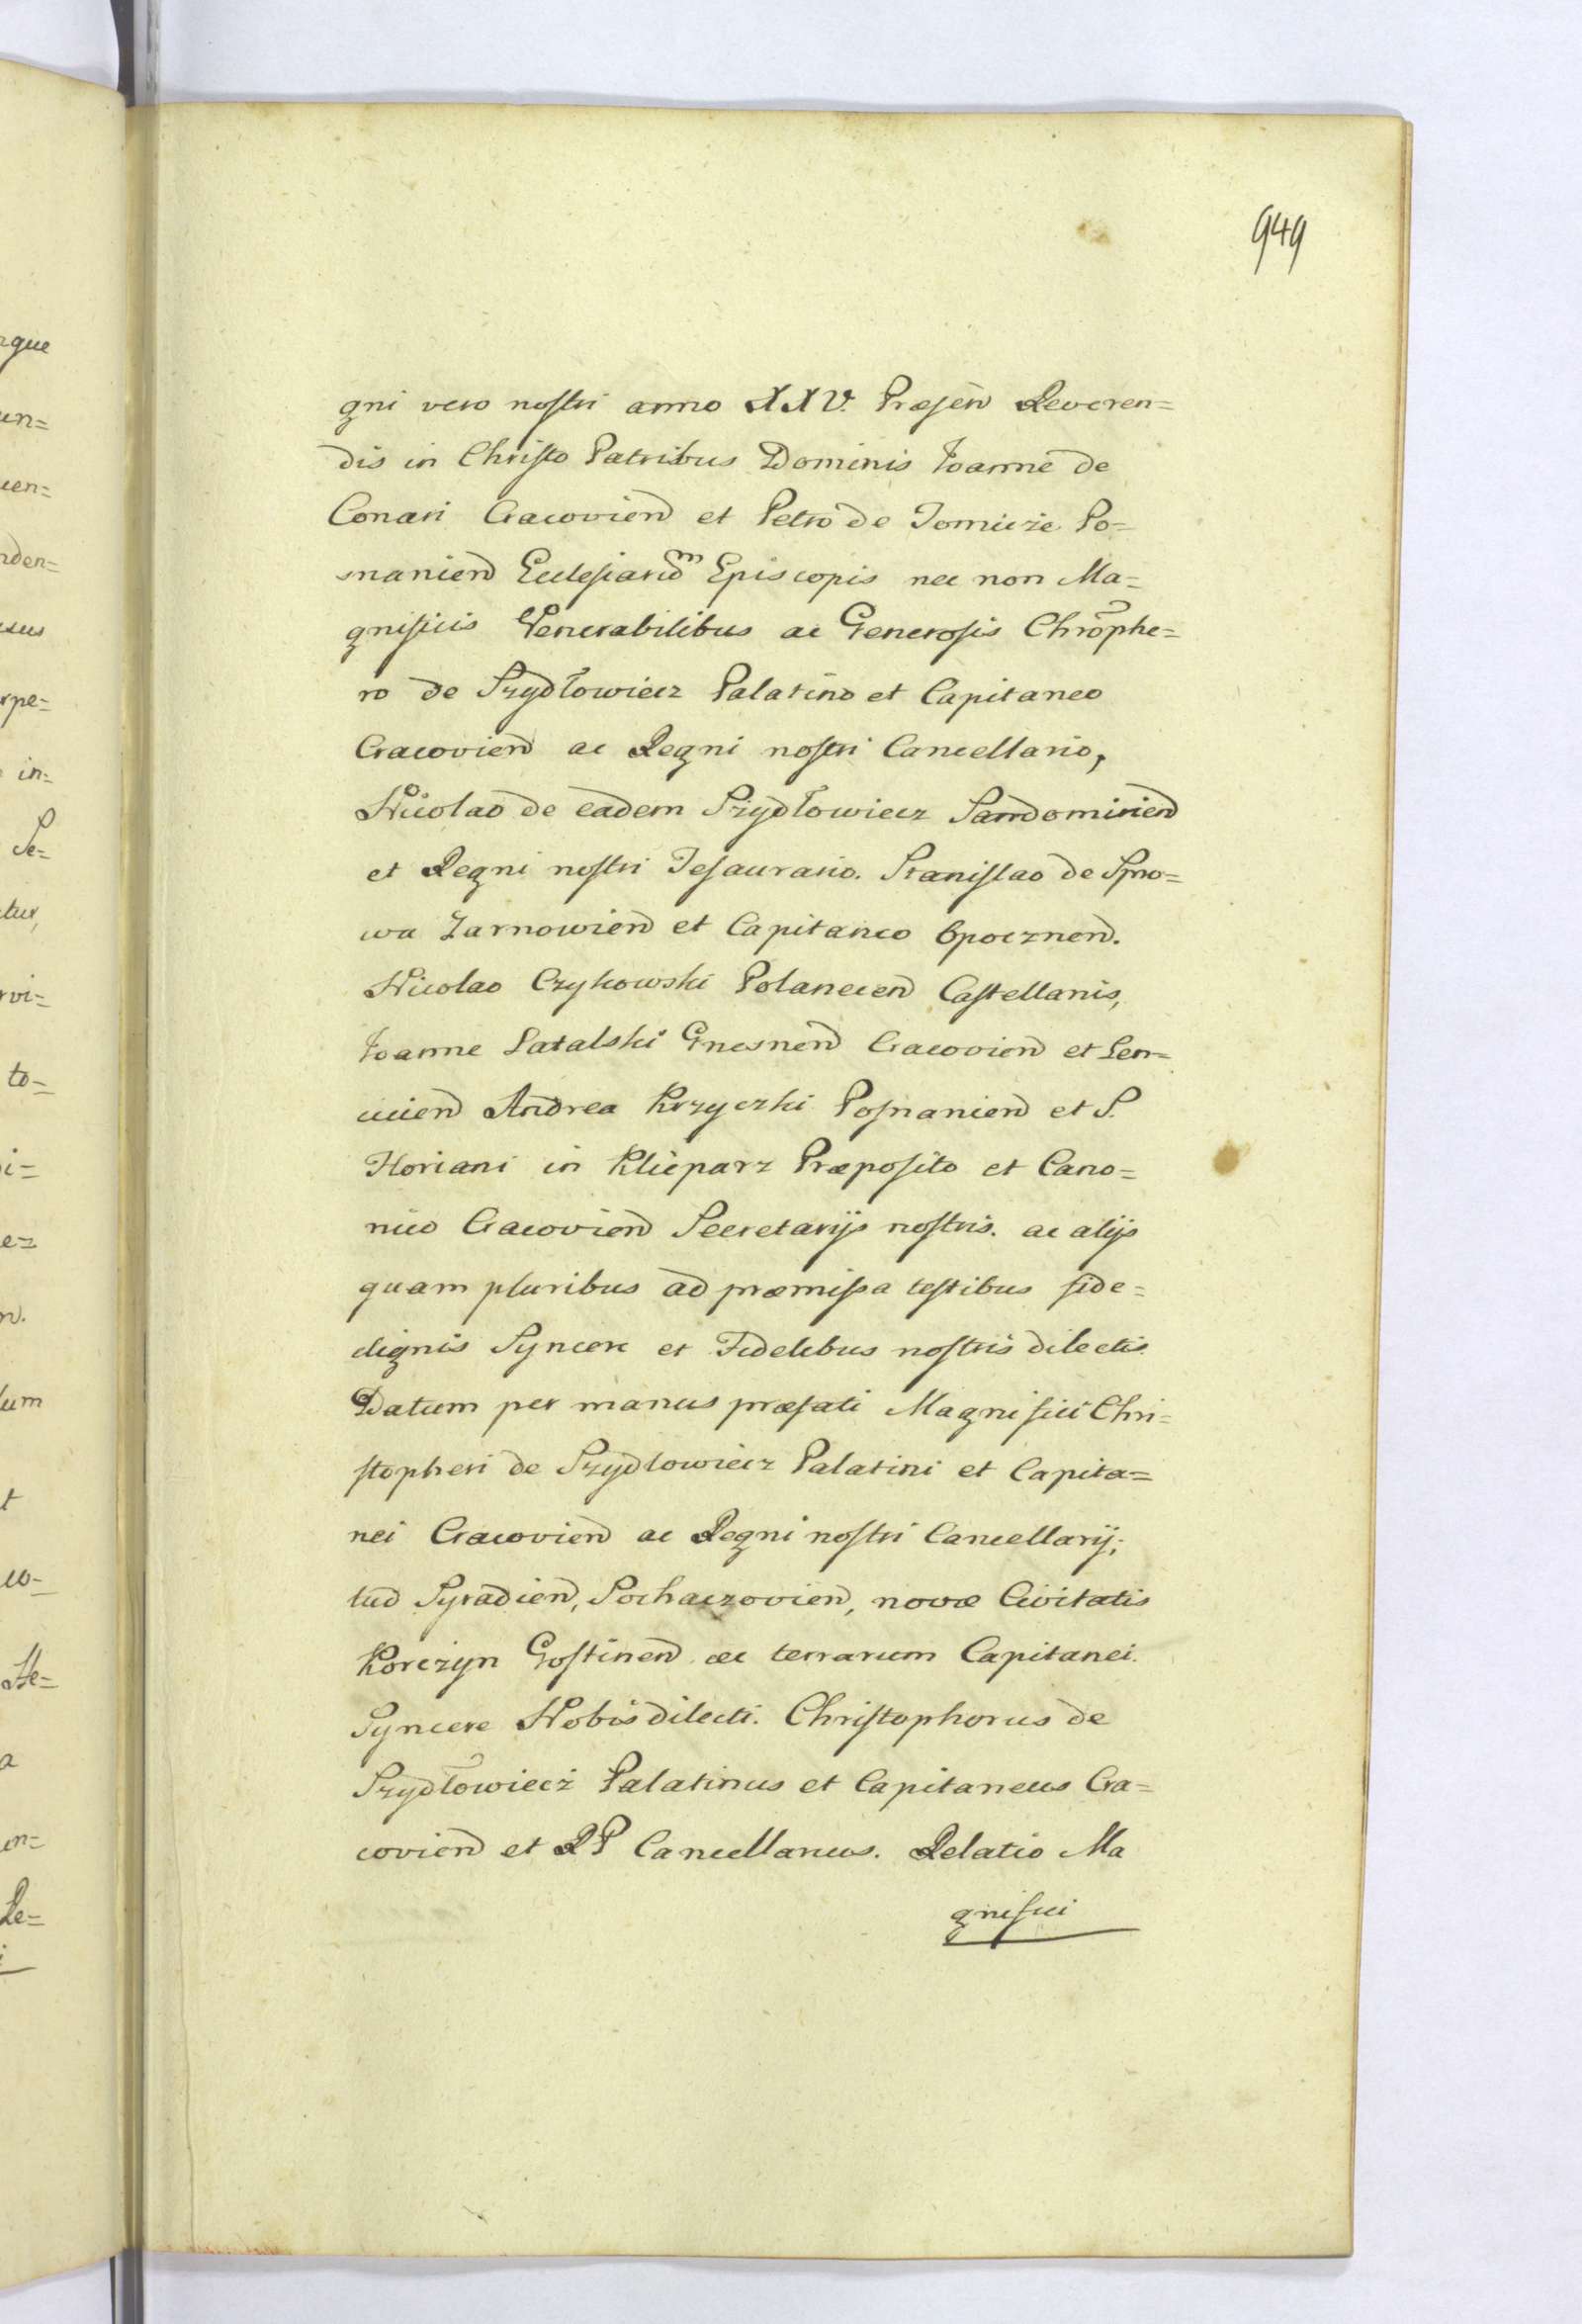 949
gni vero nostri anno XXV. Præsen Reveren=
dis in Christo Patribus Dominis Joanne de
Conari Cracovien et Petro de Tomicze Po=
snanien Ecclesiarum Episcopis nec non Ma=
gnificis Venerabilibus ac Generosis Chrõphe=
ro de Szydłowiecz Palatino et Capitaneo
Cracovien ac Regni nostri Cancellario,
Nicolao de eadem Szydłowiecz Sandomirien
et Regni nostri Tesaurario. Stanislao de Spro=
wa Zarnowien et Capitaneo Opocznen.
Nicolao Czykowski Polanecen Castellanis,
Joanne Latalski Gnesnen Cracovien et Len=
cicien Andrea Krzyczki Posnanien et S.
Floriani in Klieparz Præposito et Cano=
nico Cracovien Secretarijs nostris. ac alijs
quam pluribus ad præmissa testibus fide=
dignis Syncere et Fidelibus nostris dilectis.
Datum per manus præfati Magnifici Chri=
stopheri de Szydlowiecz Palatini et Capita=
nei Cracovien ac Regni nostri Cancellarij;
tud Syradien, Sochaczovien, novæ Civitatis
Korczyn Gostinen ac terrarum Capitanei.
Syncere Nobis dilecti. Christophorus de
Szydłowiecz Palatinus et Capitaneus Cra=
covien et RP Cancellarius. Relatio Ma
gnifici
rque
in=
Se=
tur,
rvi=
to=
lum
Re=